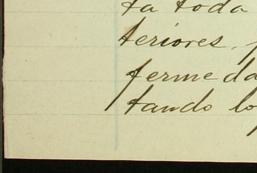 ta toda
teriores,
ferme da
tando lo